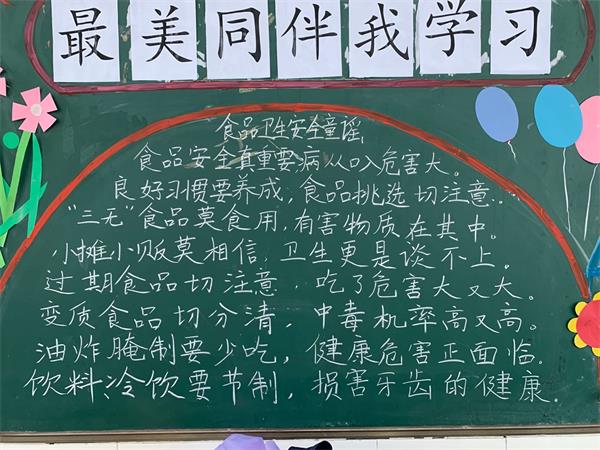 最美同伴我学习
食品卫生安全童谣
食品安全真重要病从口入危害大。
良好习惯要养成,食品挑选切注意.
"三无"食品莫食用,有害物质在其中。
小摊小贩莫相信,卫生更是谈不上。
过期食品切注意,吃了危害大又大。
变质食品切分清,中毒机率高又高。
油炸腌制要少吃,健康危害正面临.
饮料、冷饮要节制,损害牙齿的健康.